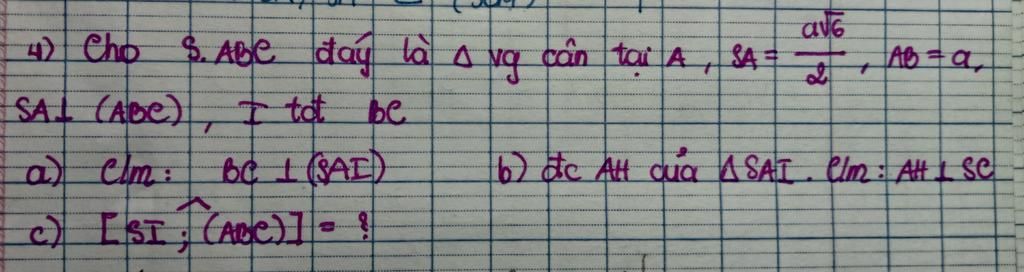 4) Cho S.ABC đáy là Δ vg cân tại A, SA = a√6/2, AB = a,
SA⊥ (ABC), I tđt BC
a) C/m: BC ⊥ (SAI) b) đc AH của ΔSAI. C/m: AH ⊥ SC
c) [SI; (ABC)] = ?